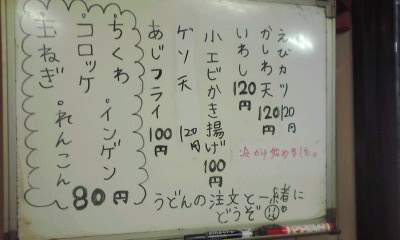 えびカツ 120円
かしわ天 120円
いわし 120円
小エビかき揚げ 100円
ゲソ天 120円
あじフライ 100円
ちくわ 。インゲン
コロッケ 。れんこん
玉ねぎ
80円
始めました。
うどんの注文と一緒に
どうぞ